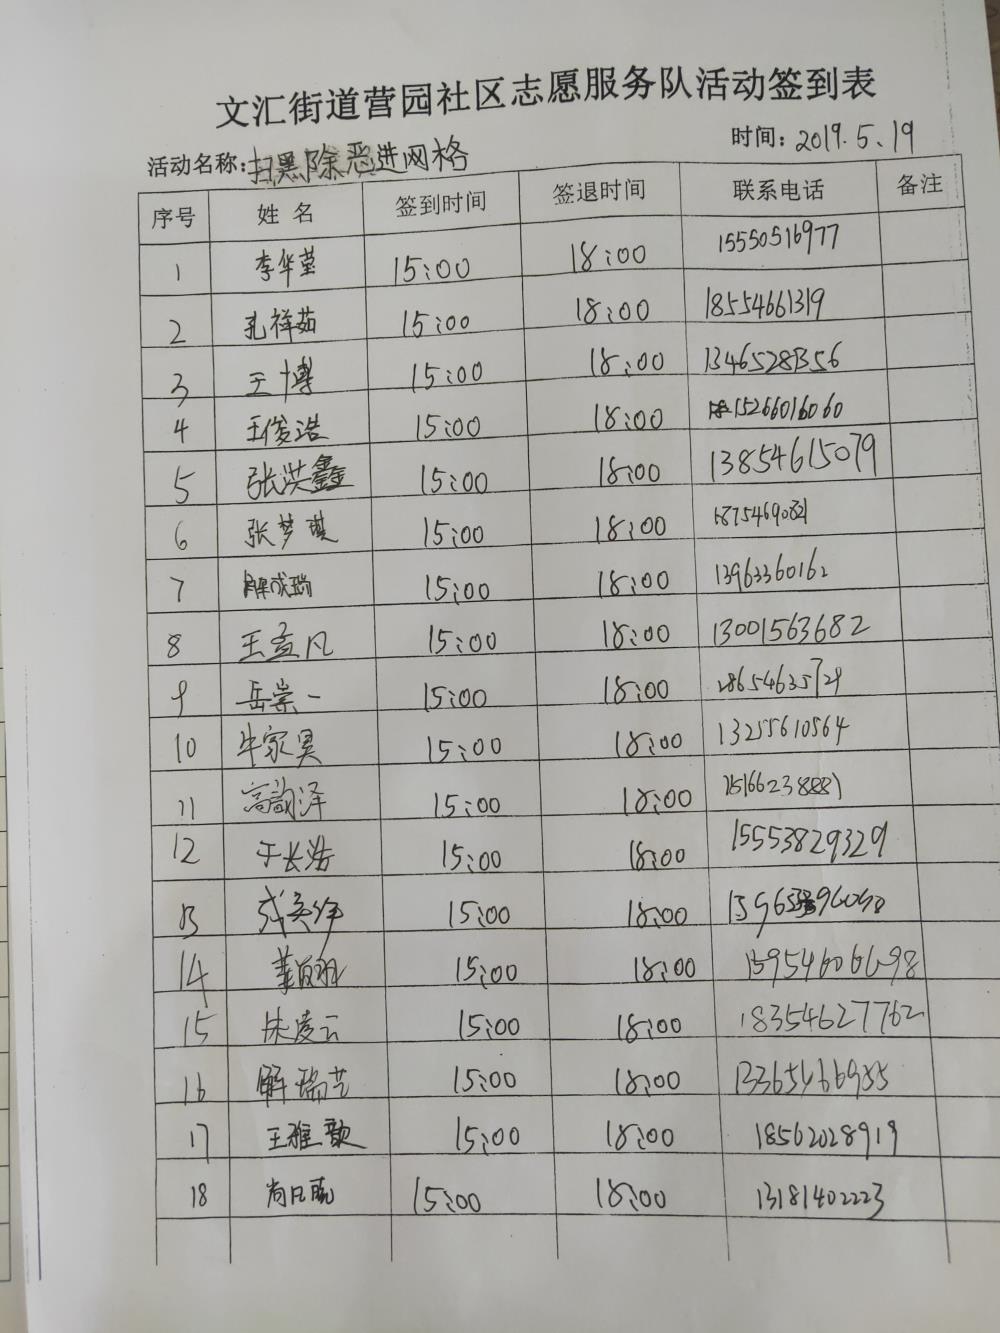 文汇街道营园社区志愿服务队活动签到表
活动名称:扫黑除恶进网格 时间:2019.5.19
序号 姓名 签到时间 签退时间 联系电话 备注
1 李华莹 15:00 18:00 15550516977
2 孔祥茹 15:00 18:00 18554661319
3 王博 15:00 18:00
4 王俊浩 15:00 18:00 15266016060
5 张洪鑫 15:00 18:00 13854615079
6 张梦琪 15:00 18:00
7 解成瑞 15:00 18:00 13963360162
8 王宣凡 15:00 18:00 13001563682
9 岳崇一 15:00 18:00
10 牛家昊 15:00 18:00 13255610564
11 高韵泽 15:00 18:00
12 于长浩 15:00 18:00 15553829329
13 15:00 18:00
14 15:00 18:00 15954606698
15 朱凌云 15:00 18:00 18354627762
16 解瑞芝 15:00 18:00 13365466985
17 王雅歌 15:00 18:00 18562028919
18 15:00 18:00 13181402223